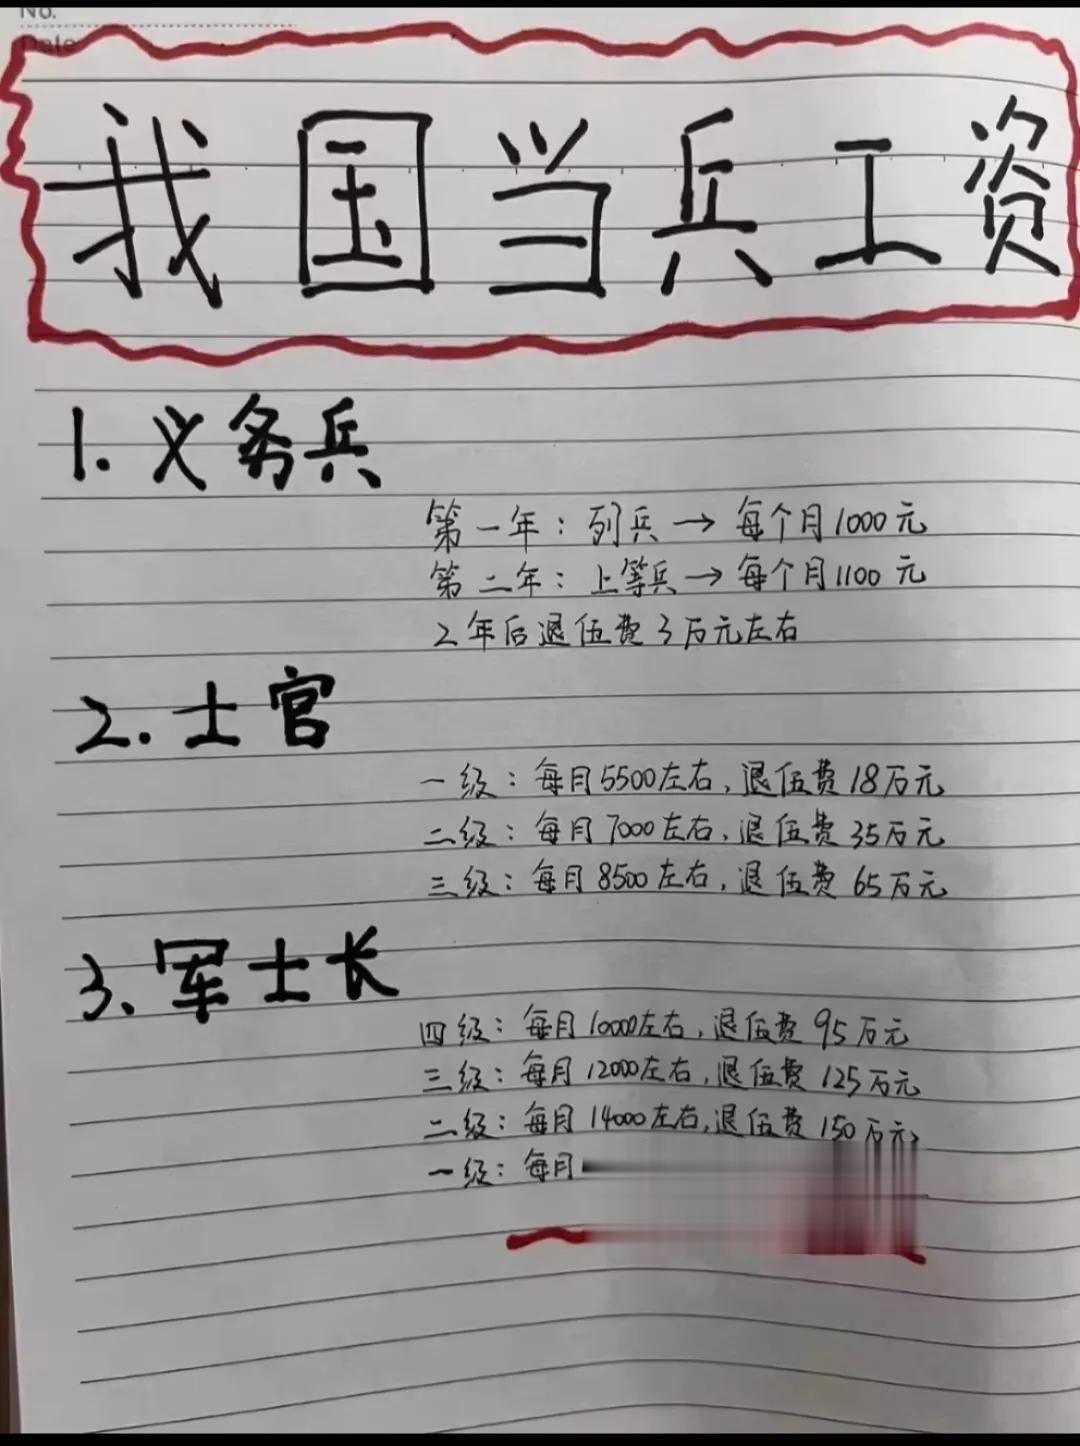 No.
Date
我国当兵工资
1. 义务兵
第一年：列兵→每个月1000元
第二年：上等兵→每个月1100元
2年后退伍费3万元左右
2. 士官
一级：每月5500左右，退伍费18万元
二级：每月7000左右，退伍费35万元
三级：每月8500左右，退伍费65万元
3、军士长
四级：每月10000左右，退伍费95万元
三级：每月12000左右，退伍费125万元
二级：每月14000左右，退伍费150万元
一级：每月